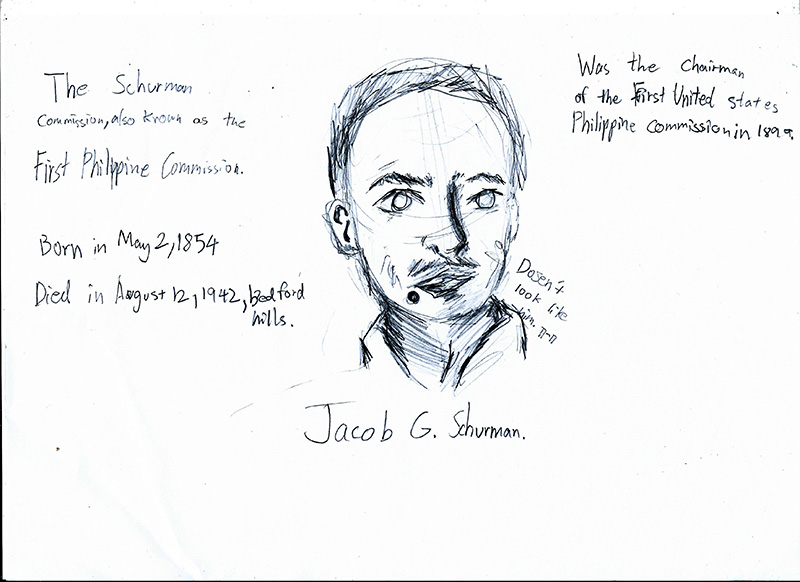 The Schurman
Commission, also known as the
First Philippine Commission.
Born in May 2, 1854
Died in August 12, 1942, Bedford
hills.
Was the Chairman
of the First United states
Philippine Commission in 1899.
Dosen't
look like
him. π-π
Jacob G. Schurman.